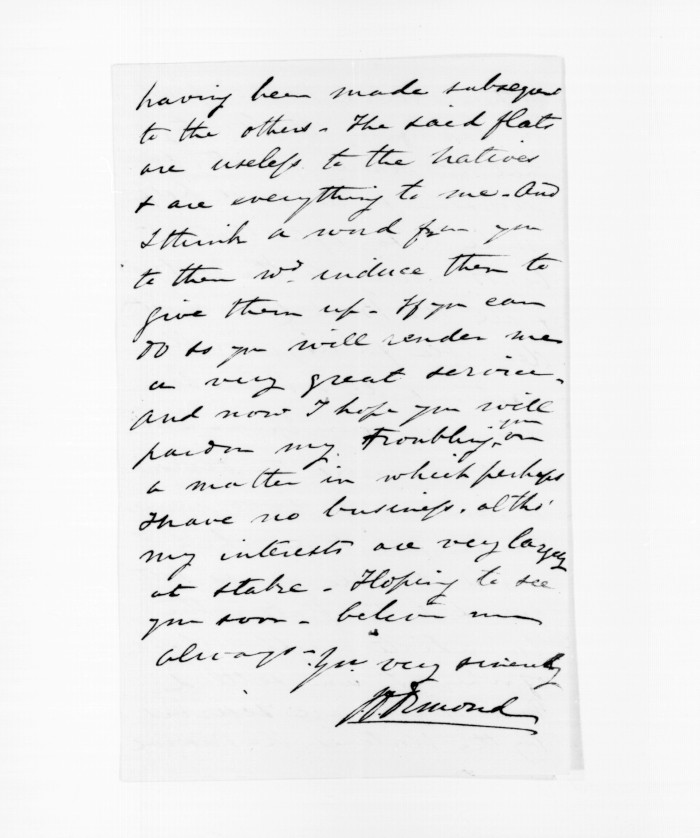 having been made subsequent
to the others - The said flats
are useless to the natives
& are everything to me - And
I think a word from you
to them wd. induce them to
give them up - If you can
do so you will render me
a very great service -
And now I hope you will
pardon my troubling you on
a matter in which perhaps
I have no business, altho'
my interests are very largely
at stake - Hoping to see
you soon - believe me
always - Yrs. very sincerely
JD Ormond